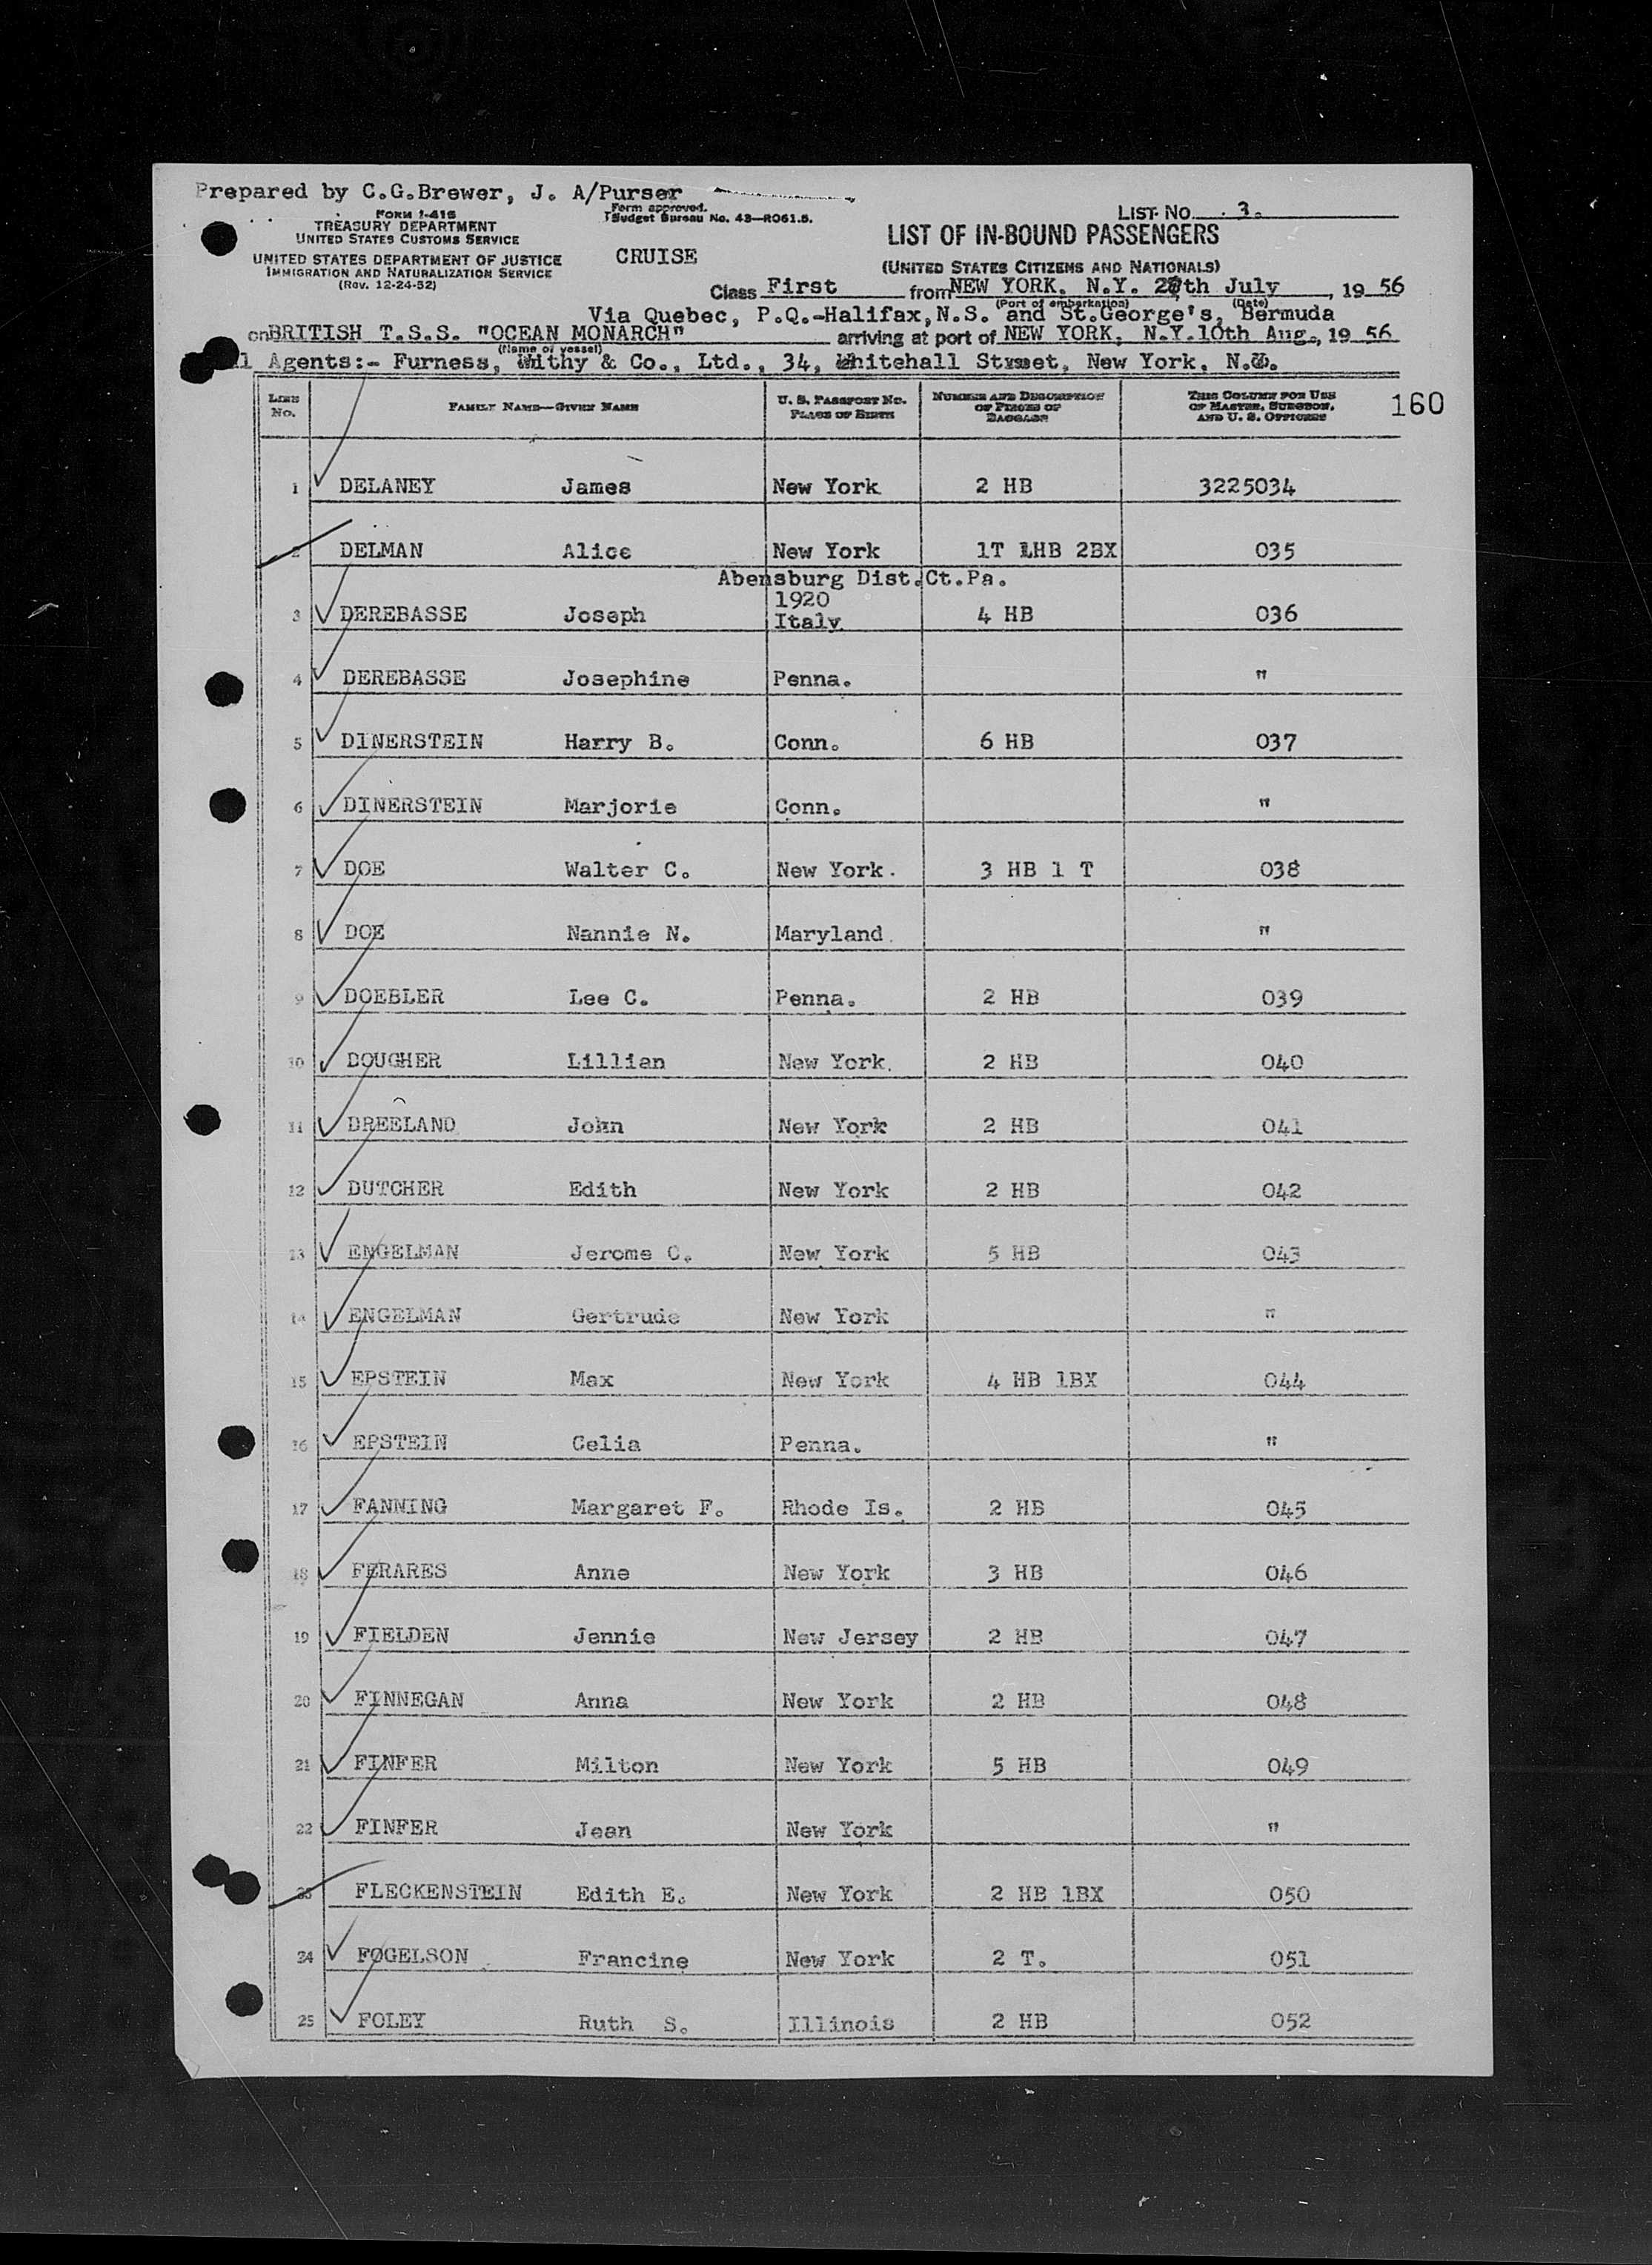 Prepared by C.G.Brewer, J. A/Purser
FORM I-418
TREASURY DEPARTMENT
UNITED STATES CUSTOMS SERVICE
UNITED STATES DEPARTMENT OF JUSTICE
IMMIGRATION AND NATURALIZATION SERVICE
(Rev. 12-24-52)
Form approved.
Budget Bureau No. 43—RO61.5.
CRUISE
LIST NO. 3.
LIST OF IN-BOUND PASSENGERS
(UNITED STATES CITIZENS AND NATIONALS)
Class First from NEW YORK. N.Y. 28th July, 19 56
(Port of embarkation) (Date)
Via Quebec, P.Q.-Halifax, N.S. and St.George's, Bermuda
on BRITISH T.S.S. "OCEAN MONARCH" arriving at port of NEW YORK, N.Y. 10th Aug., 19 56
(Name of vessel)
Agents:- Furness, Withy & Co., Ltd., 34, Whitehall Street, New York, N.Y.
LINE No. FAMILY NAME—GIVEN NAME U. S. PASSPORT NO. PLACE OF BIRTH NUMBER AND DESCRIPTION OF PIECES OF BAGGAGE THIS COLUMN FOR USE OF MASTER, SURGEON, AND U. S. OFFICERS 160
1 DELANEY James New York 2 HB 3225034
2 DELMAN Alice New York 1T 1HB 2BX 035
Abensburg Dist.Ct.Pa.
1920
3 DEREBASSE Joseph Italy 4 HB 036
4 DEREBASSE Josephine Penna. "
5 DINERSTEIN Harry B. Conn. 6 HB 037
6 DINERSTEIN Marjorie Conn. "
7 DOE Walter C. New York. 3 HB 1 T 038
8 DOE Nannie N. Maryland "
9 DOEBLER Lee C. Penna. 2 HB 039
10 DOUGHER Lillian New York. 2 HB 040
11 DREELAND John New York 2 HB 041
12 DUTCHER Edith New York 2 HB 042
13 ENGELMAN Jerome C. New York 5 HB 043
14 ENGELMAN Gertrude New York "
15 EPSTEIN Max New York 4 HB 1BX 044
16 EPSTEIN Celia Penna. "
17 FANNING Margaret F. Rhode Is. 2 HB 045
18 FERARES Anne New York 3 HB 046
19 FIELDEN Jennie New Jersey 2 HB 047
20 FINNEGAN Anna New York 2 HB 048
21 FINFER Milton New York 5 HB 049
22 FINFER Jean New York "
23 FLECKENSTEIN Edith E. New York 2 HB 1BX 050
24 FOGELSON Francine New York 2 T. 051
25 FOLEY Ruth S. Illinois 2 HB 052